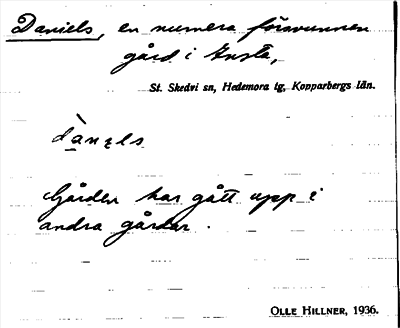 Daniels, en numera försvunnen
gård i Insta,
St. Skedvi sn, Hedemora tg, Kopparbergs län.
Gården har gått upp i
andra gårdar.
OLLE HILLNER, 1936.